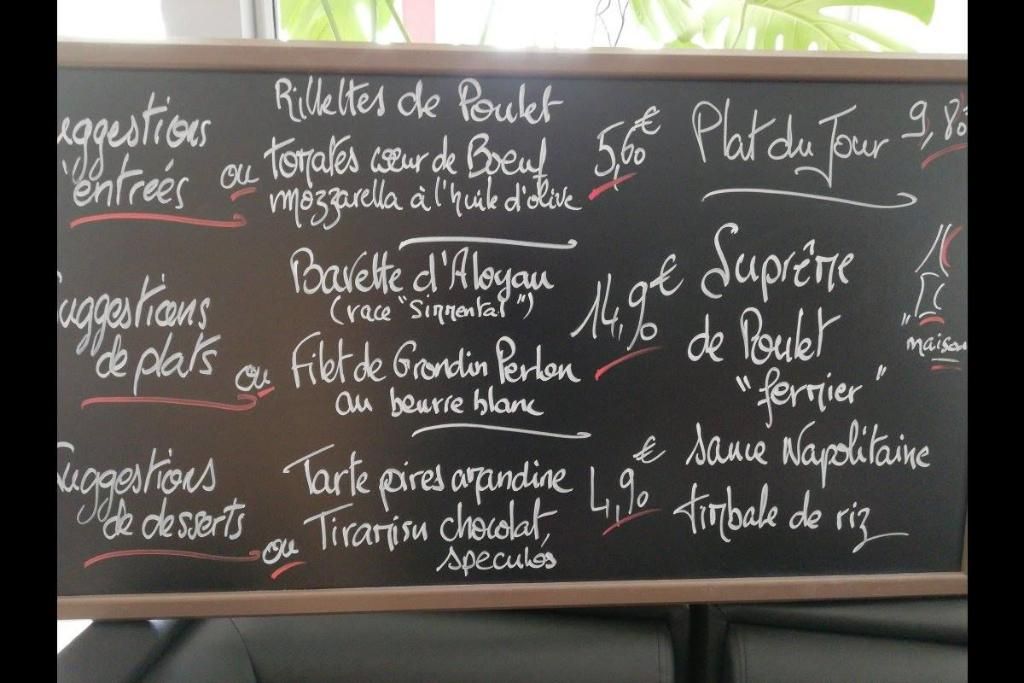 uggestions
entrées
ou
Rillettes de Poulet
tomates cœur de Boeuf
mozzarella à l'huile d'olive
5,60 €
uggestions
de plats
ou
Bavette d'Aloyau
(race "Simmental")
Filet de Grondin Perlon
au beurre blanc
14,90 €
Suggestions
de desserts
ou
Tarte poires amandine
Tiramisu chocolat,
spéculos
4,90 €
Plat du Jour 9,80
Suprême
de Poulet
"fermier"
sauce Napolitaine
timbale de riz
"maison